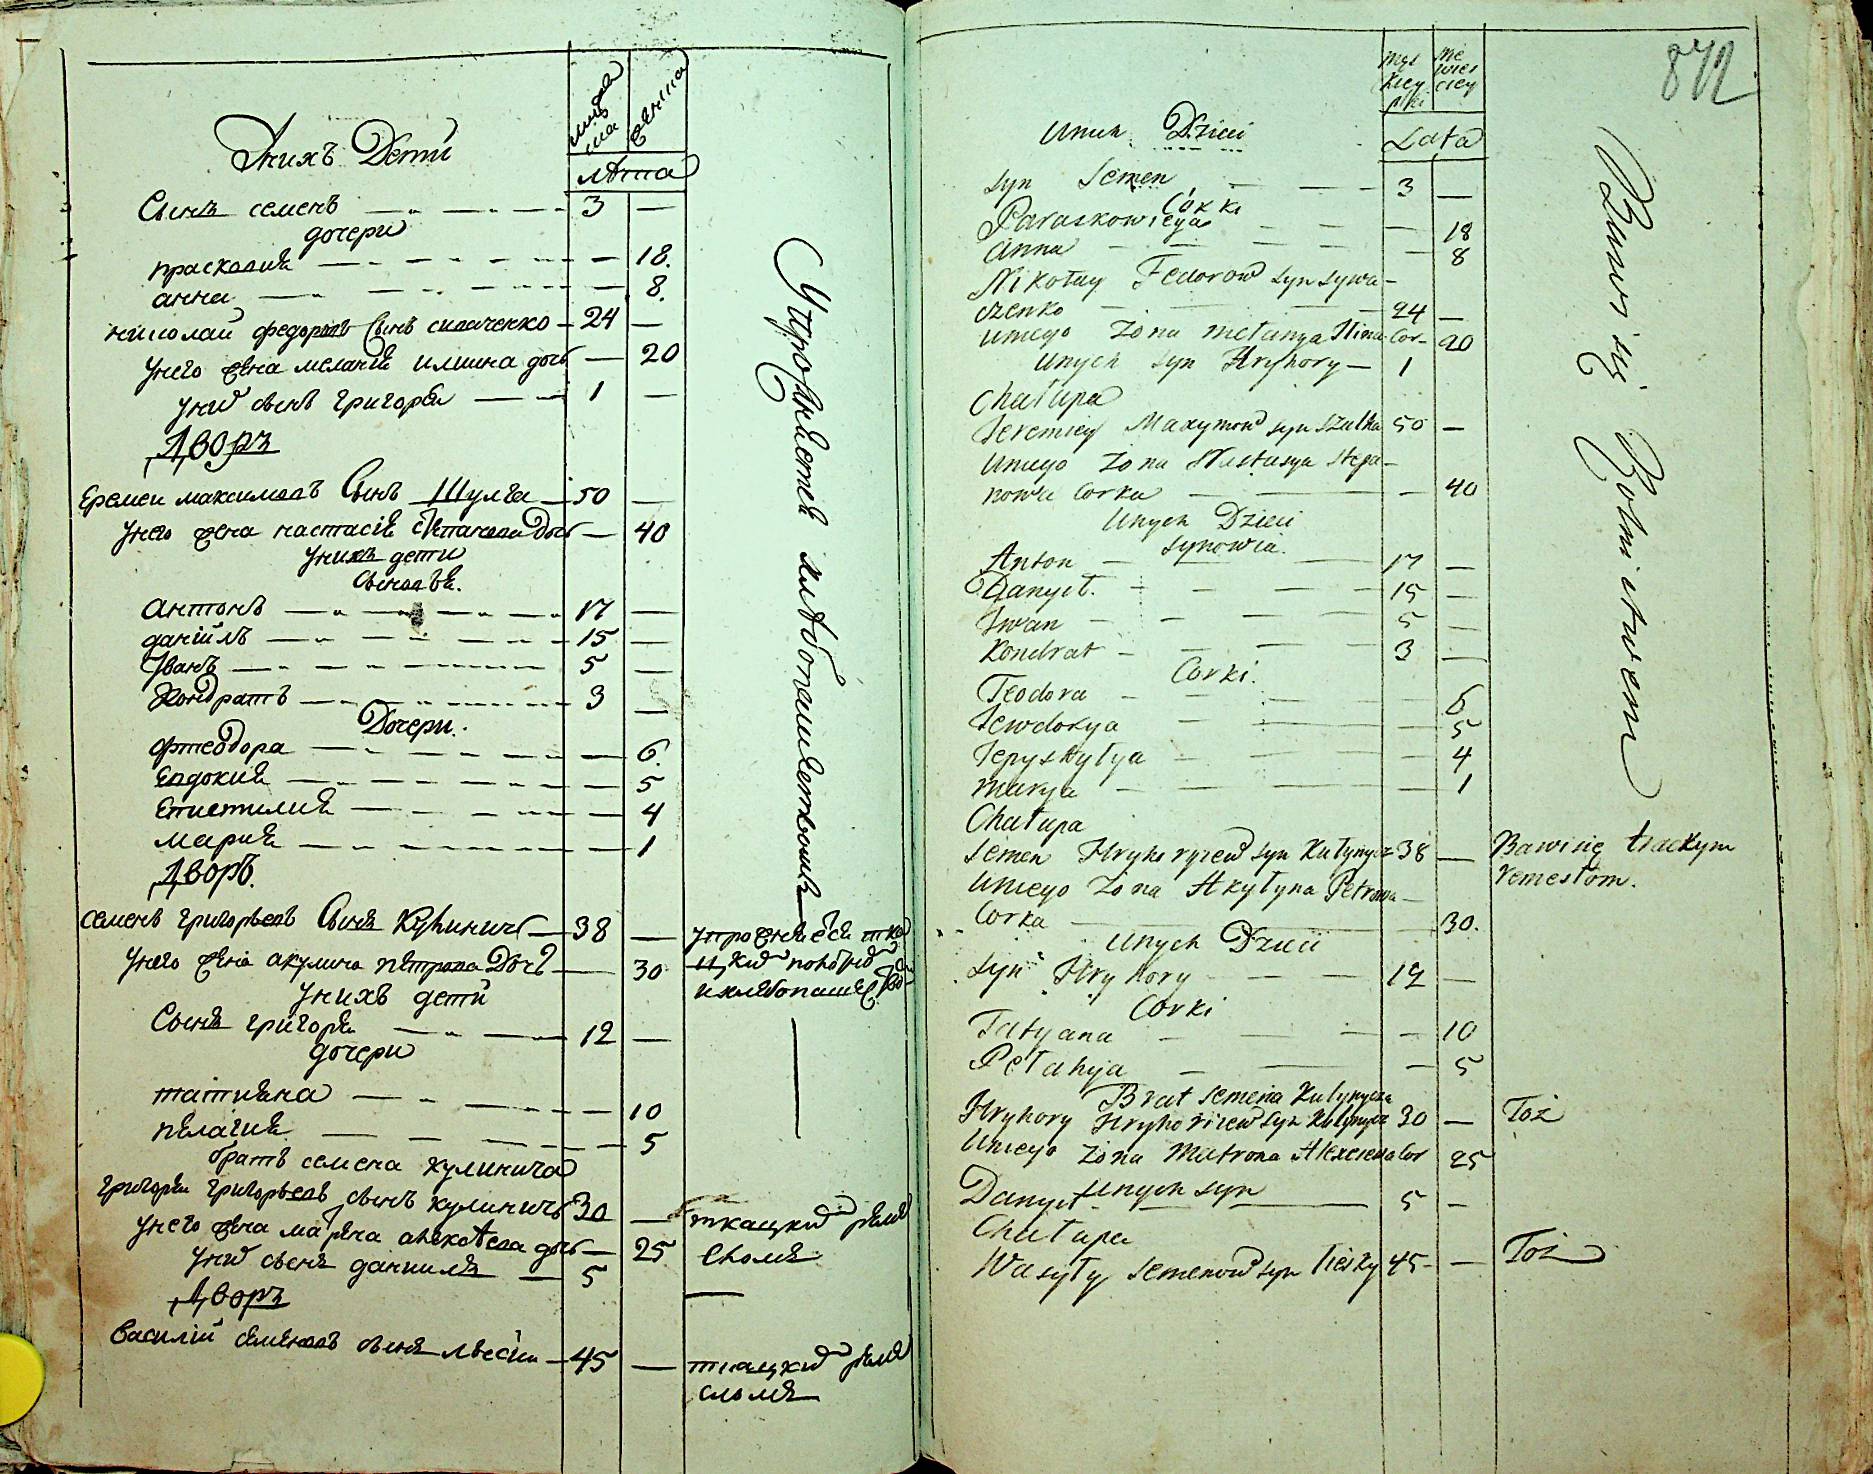 мужеска
женска
Унихъ Дети
лѣта
Сынъ семенъ 3 —
дочери
прасковия — 18.
анна — 8.
николай федоровъ Сынъ сиваченко — 24 —
унего жена мелания илиина дочь — 20
унихъ сынъ григорей — 1 —
Дворъ
Еремеи максимовъ Сынъ Шулга — 50 —
унего жена настасія степанова дочь — 40
унихъ дети
Сыновья.
антонъ — 17 —
даніилъ — 15 —
Иванъ — 5 —
Кондратъ — 3 —
Дочери.
Фтеодора — 6.
Евдокия — 5
Епистилия — 4
Мария — 1
Дворъ.
Семенъ григорьевъ Сынъ Кулиничъ — 38 —
унего жена акулина петрова Дочь — 30
унихъ дети
Сынъ григорей — 12 —
дочери
татияна — 10
пелагия — 5
братъ семена кулинича
григорей григорьевъ сынъ кулиничъ 30 —
унего жена матрена алексѣева дочь — 25
унихъ сынъ даниилъ — 5
Дворъ
Василій семеновъ сынъ лѣский — 45 —
Упражняется хлѣбопашествомъ
упражняется тка
цкимъ
и хлебопашество
ткацкимъ реме
сломъ
ткацкимъ реме
сломъ
872
Męz
kiey
płci
Nie
wies
ciey
Unich Dzieci
Lata
syn Semen — 3 —
Corki
Paraskowieya — 18
Anna — 8
Nikołay Fedorow syn sywa-
czenko — 24 —
uniego Zona Metanya Ilina Cor- 20
Unych syn Hryhory — 1
Chałupa
Jeremiey Maxymow syn Szulha 50 —
Uniego Zona Nastasya Stepa-
nowa Corka — 40
Unych Dzieci
synowia.
Anton — 17 —
Danyło. — 15 —
Iwan — 5 —
Kondrat — 3 —
Corki.
Teodora — 6
Jewdokya — 5
Jepystylya — 4
Marya — 1
Chałupa
Semen Hryhoryiew syn Kulynycz 38 —
Uniego Zona Akylyna Petrowa —
Corka — 30.
Unych Dzieci
syn Hryhory — 12 —
Corki
Tatyana — 10
Pełahja — 5
Brat Semena Kulynycza
Hryhory Hryhoriiew syn Kulynycz 30 —
Uniego Zona Matrona Alexeiewa Cor 25
Unych syn
Danyło — 5 —
Chałupa
Wasyly Semenow syn Lisky 45 —
Bawi się Rolnictwem
Bawi się tkackym
remesłom.
Toż
Toż